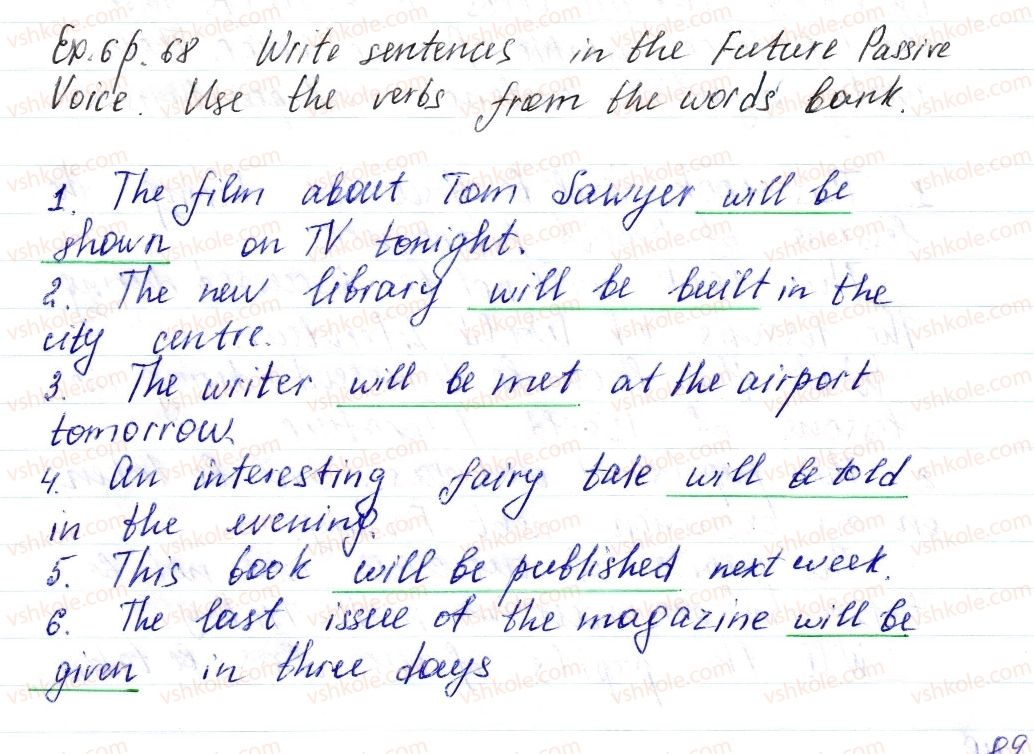 Ex. 6 p. 68 Write sentences in the Future Passive
Voice. Use the verbs from the words bank.
1. The film about Tom Sawyer will be
shown on TV tonight.
2. The new library will be built in the
city centre.
3. The writer will be met at the airport
tomorrow.
4. An interesting fairy tale will be told
in the evening.
5. This book will be published next week.
6. The last issue of the magazine will be
given in three days
89